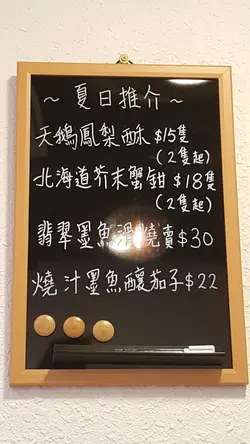 ～夏日推介～
天鵝鳳梨酥 $15隻
(2隻起)
北海道芥末蟹鉗 $18隻
(2隻起)
翡翠墨魚滑燒賣$30
燒汁墨魚釀茄子$22